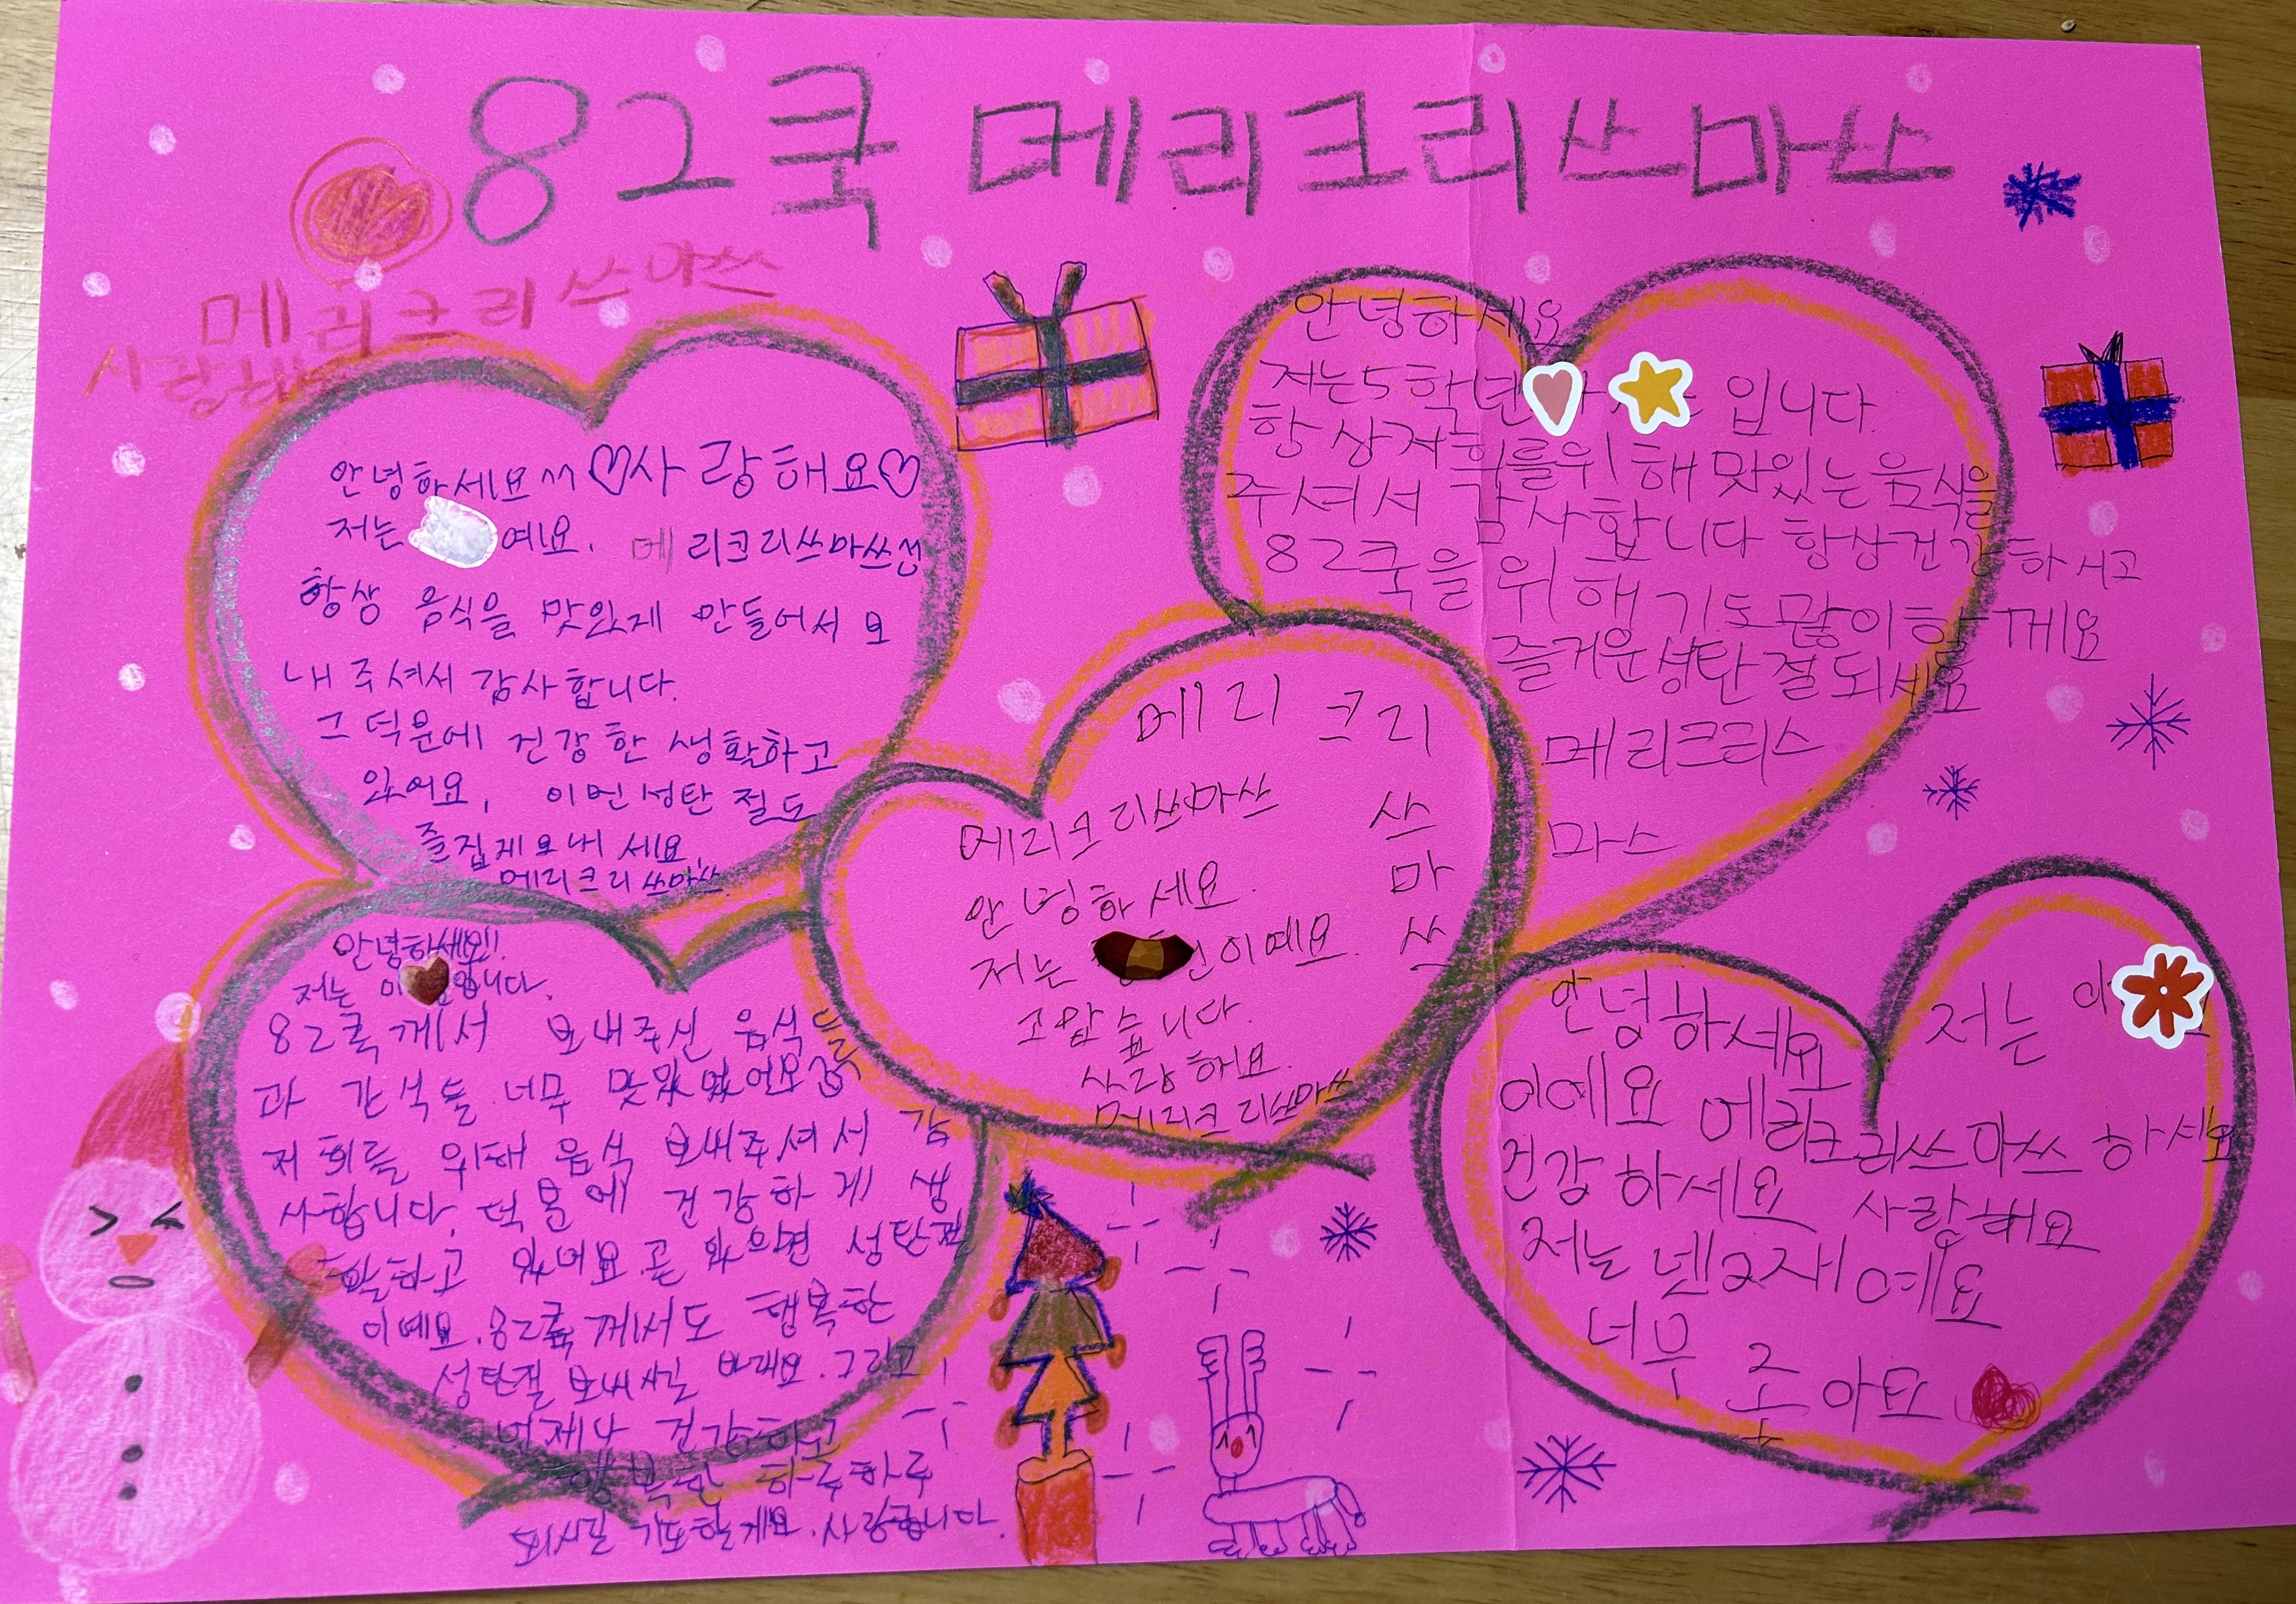 82쿡 메리크리쓰마쓰
메리크리쓰먀쓰
사랑해
안녕하세요ㅆ♡사랑해요♡
저는 예요. 메리크리쓰마쓰
항상 음식을 맛있제 만들어서 보
내주셔서 감사합니다.
그덕문에 건강한 생활하고
있어요, 이번성탄절도
즐겁게보내세요.
메리크리쓰마쓰.
안녕하세요
저는5학년 입니다.
항상저희를위해맛있는음식을
주셔서 감사합니다 항상건강하시고
82쿡을위해기도많이할께요
즐거운성탄절되세요
메리크리스
마스
메리 크리
쓰
마
쓰
메리크리쓰마쓰
안녕하세요.
저는 이예요.
고맙습니다.
사랑해요.
메리크리쓰마쓰
안녕하세요!!
저는 이 입니다.
82쿡께서 보내주신 음식들
과 간식들 너무
저희들 위해 음식 보내주셔서 감
사합니다. 덕문에 건강하게 생
활하고 있어요. 곧 있으면 성탄절
이예요. 82쿡께서도 행복한
성탄절 보내시길 바래요. 그리고
언제나 건강하고
행복한 하루하루
되시길 기도할게요. 사랑합니다.
안녕하세요 저는 이
이예요 메리크리쓰마쓰 하세요
건강하세요 사랑해요
저는 넨2재예요
너무 좋아요